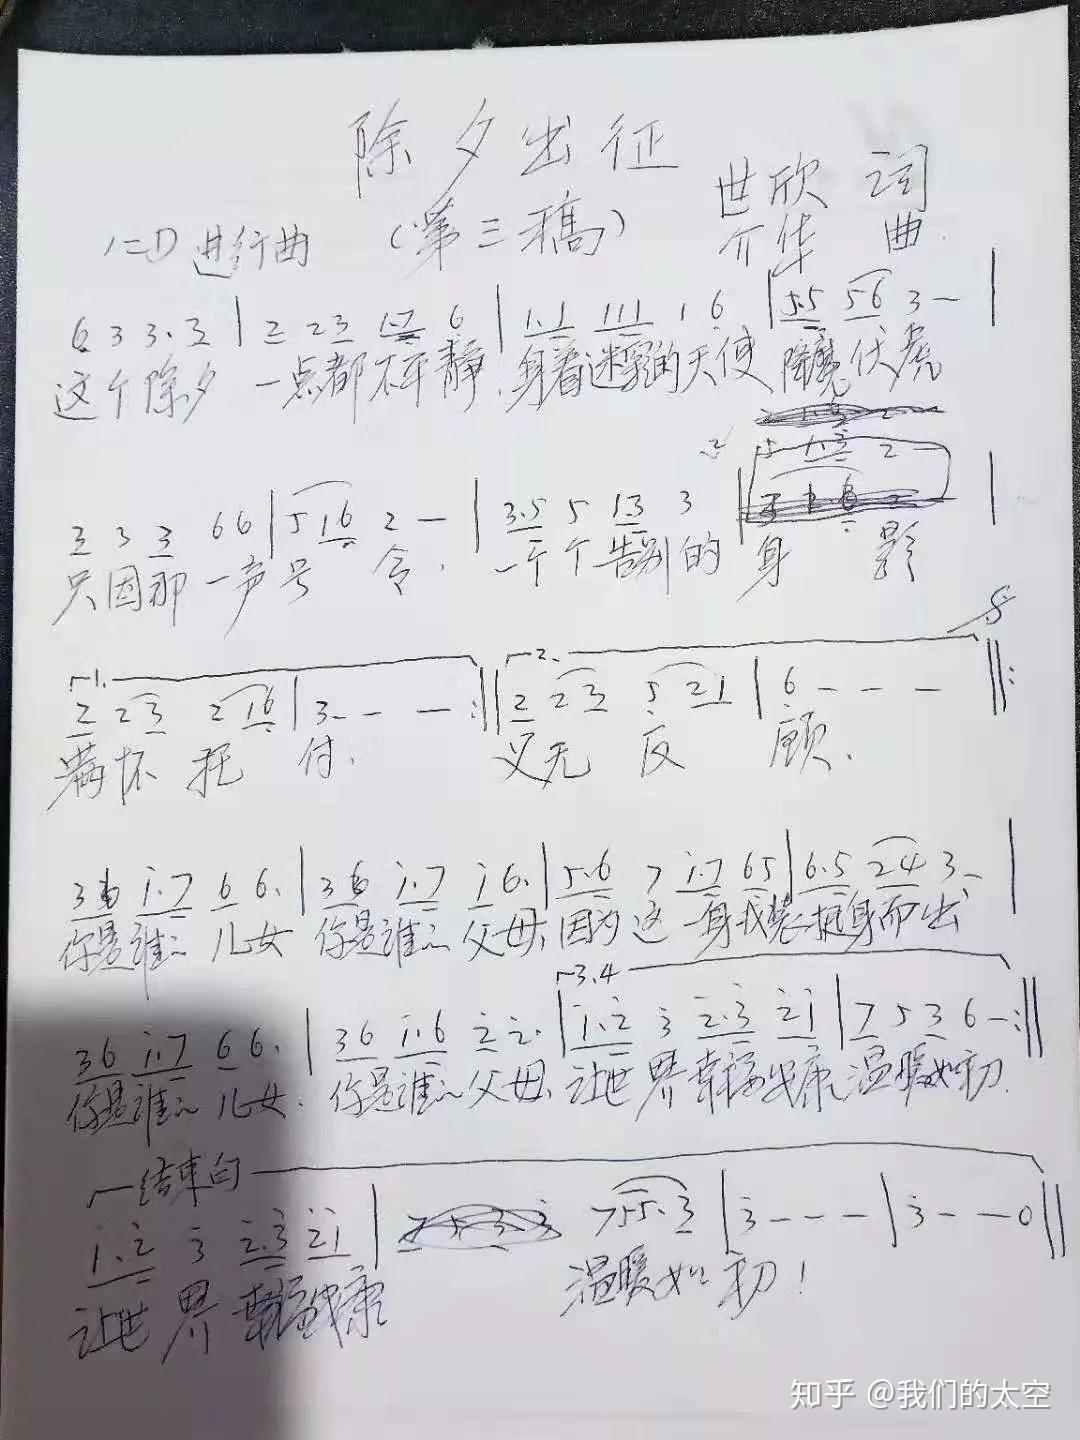 除夕出征
世欣 词
1=D 进行曲 (第三稿) 介华 曲
6 3 3. 3 | 2 23 1.7 6 | 1.1 111 1 6 | 5.5 56 3 — |
这个除夕 一点都不平静，身着迷彩的天使 降魔伏虎
3 3 3 66 | 5 16 2 — | 3.5 5 1.3 3 |
只因那一声号 令，一个个告别的 身 影
1. 2.
2 23 2 16 | 3 — — — :|| 2 23 5 21 | 6 — — — ||:
满怀 托 付． 义无 反 顾．
36 i.7 6 6. | 36 i.7 i 6. | 5.6 7 i.7 65 | 6.5 24 3 — |
你是谁的 儿女 你是谁的 父母，因为这一身戎装挺身而出
3.4
36 i.7 6 6. | 36 i.6 2 2. | i.2 3 2.3 2i | 7 5 3 6 — :||
你是谁的 儿女．你是谁的 父母，让世界幸福安康 温暖如初．
结束句
i.2 3 2.3 2i | 755.3 | 3 — — — | 3 — — 0 ||
让世界幸福安康 温暖如初！
知乎 @我们的太空